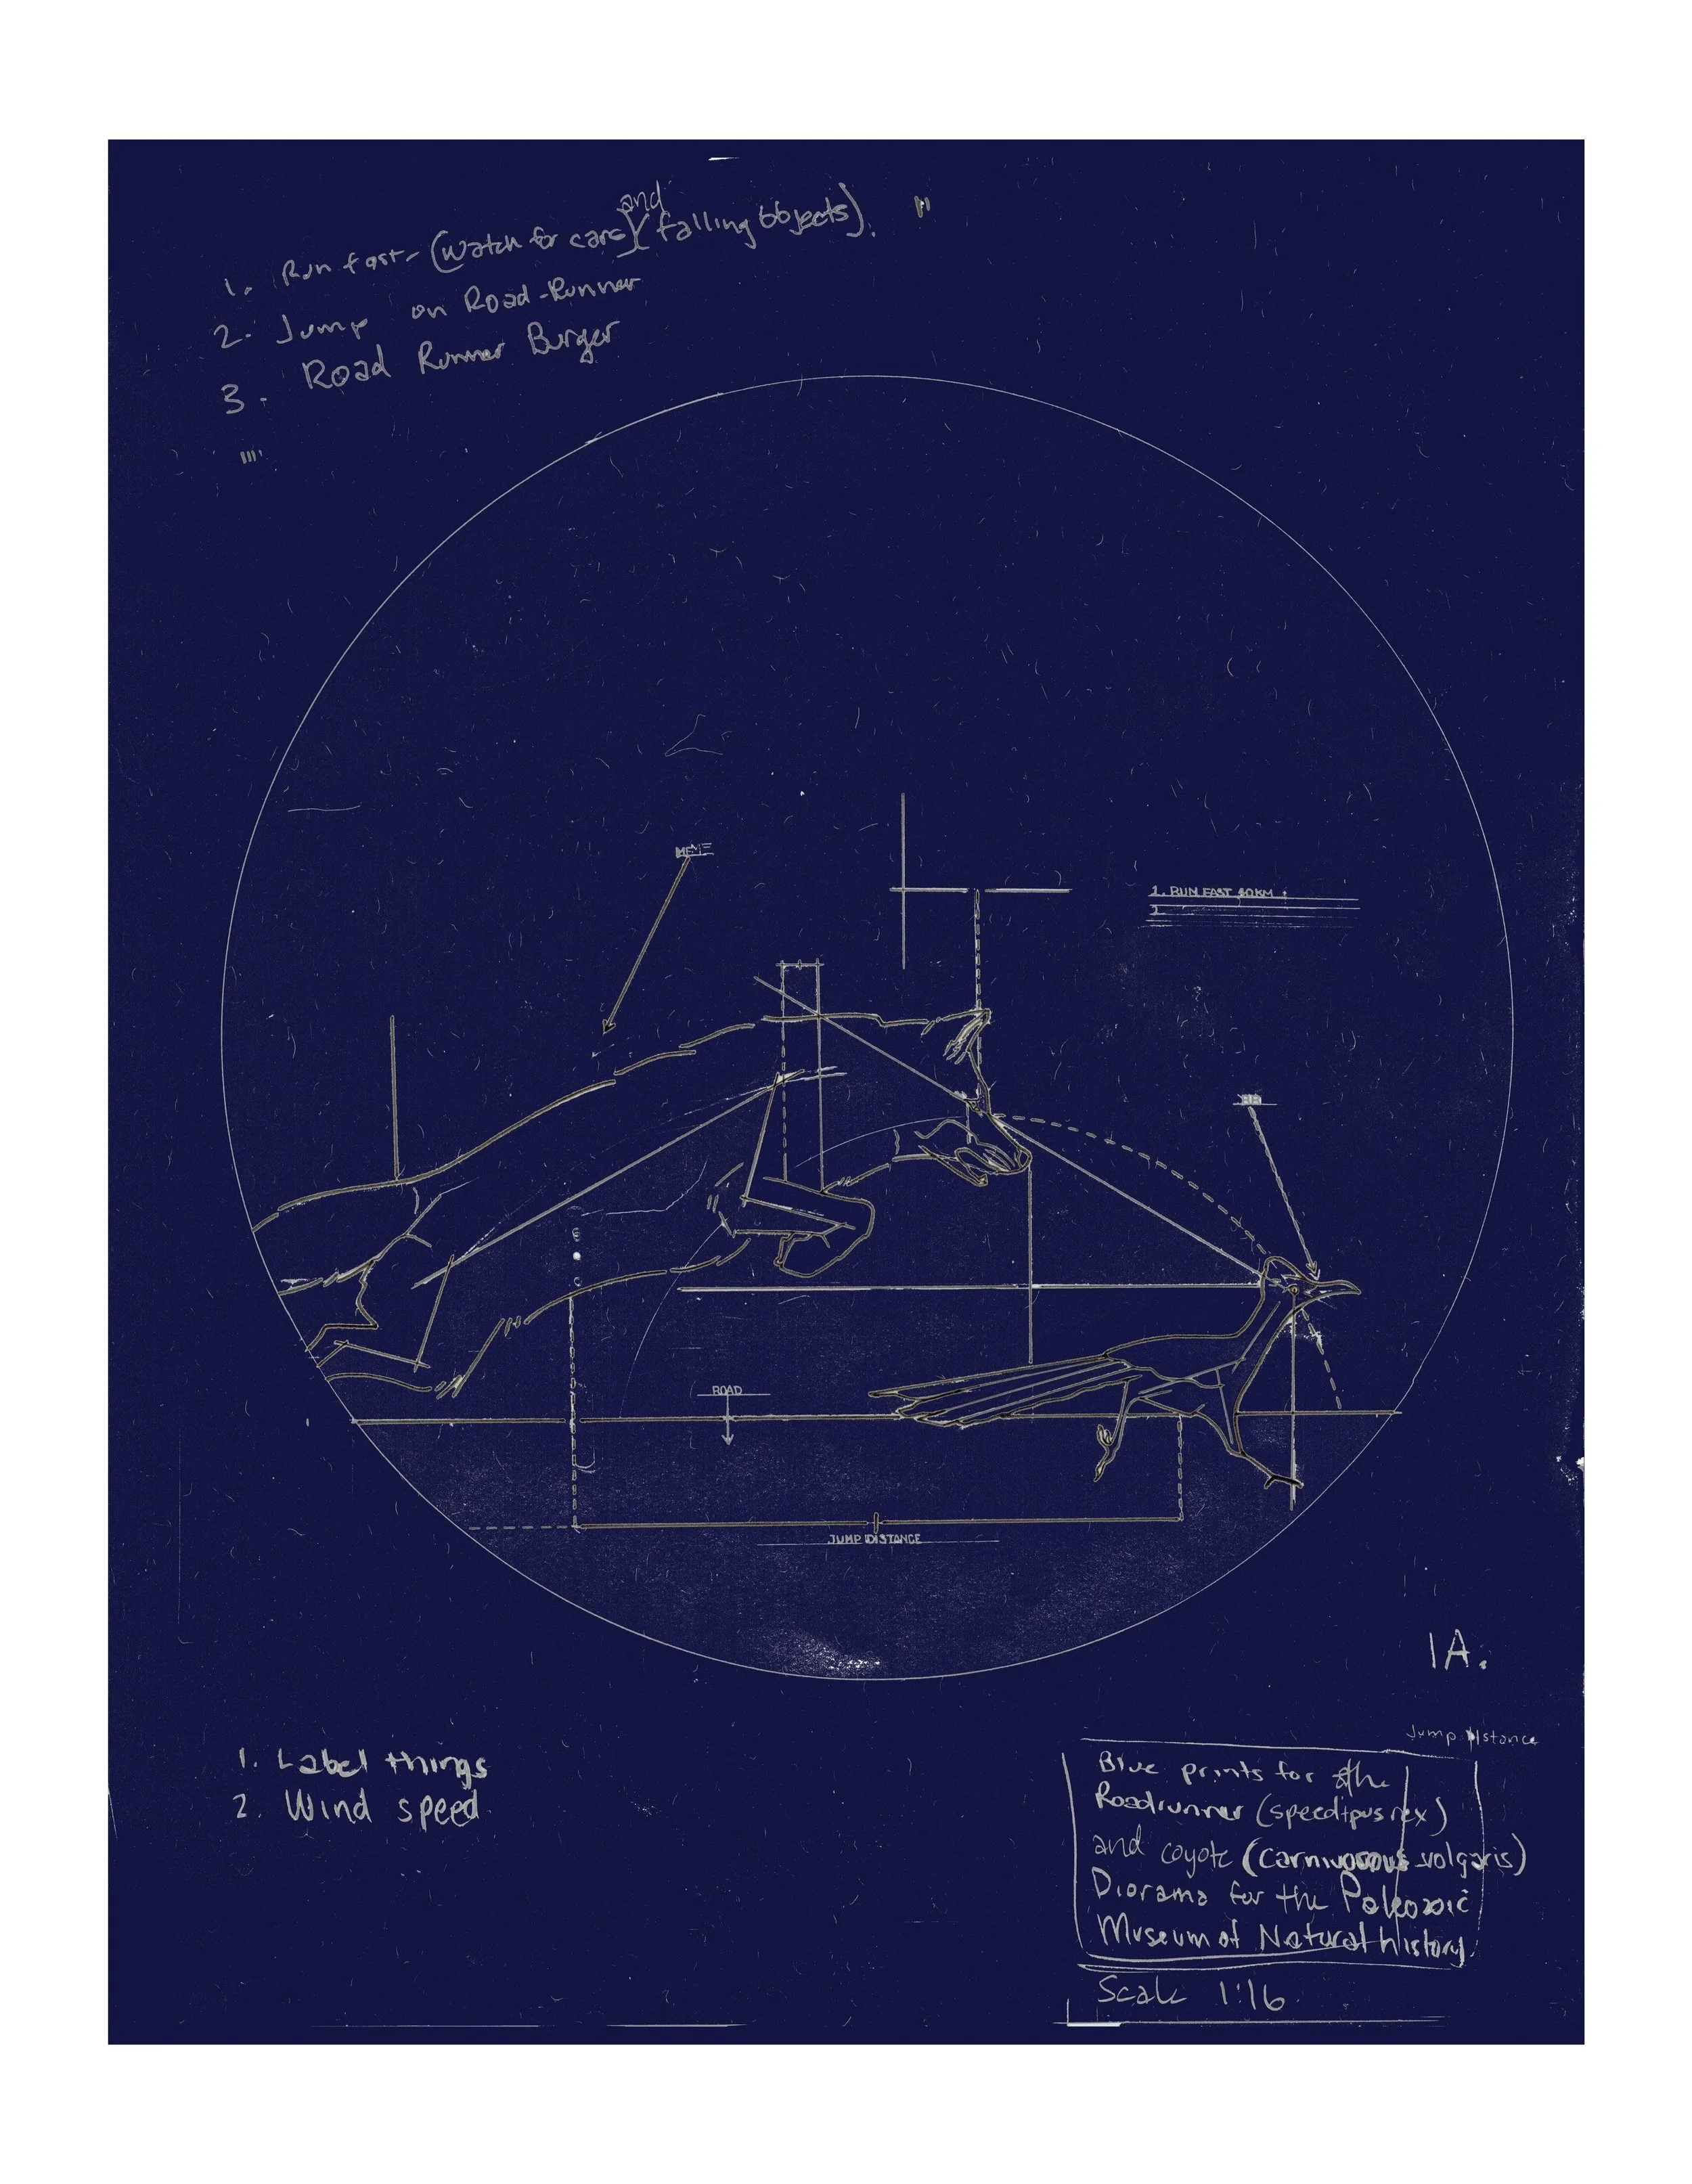 1. Run fast- (watch for cars) and (falling objects).
2. Jump on Road-Runner
3. Road Runner Burger
1. RUN FAST 40KM
2.
ROAD
JUMP DISTANCE
1A.
1. Label things
2. Wind speed
Jump Distance
Blue prints for the
Roadrunner (speedipus rex)
and coyote (carnivorous volgaris)
Diorama for the Paleozoic
Museum of Natural history.
Scale 1:16